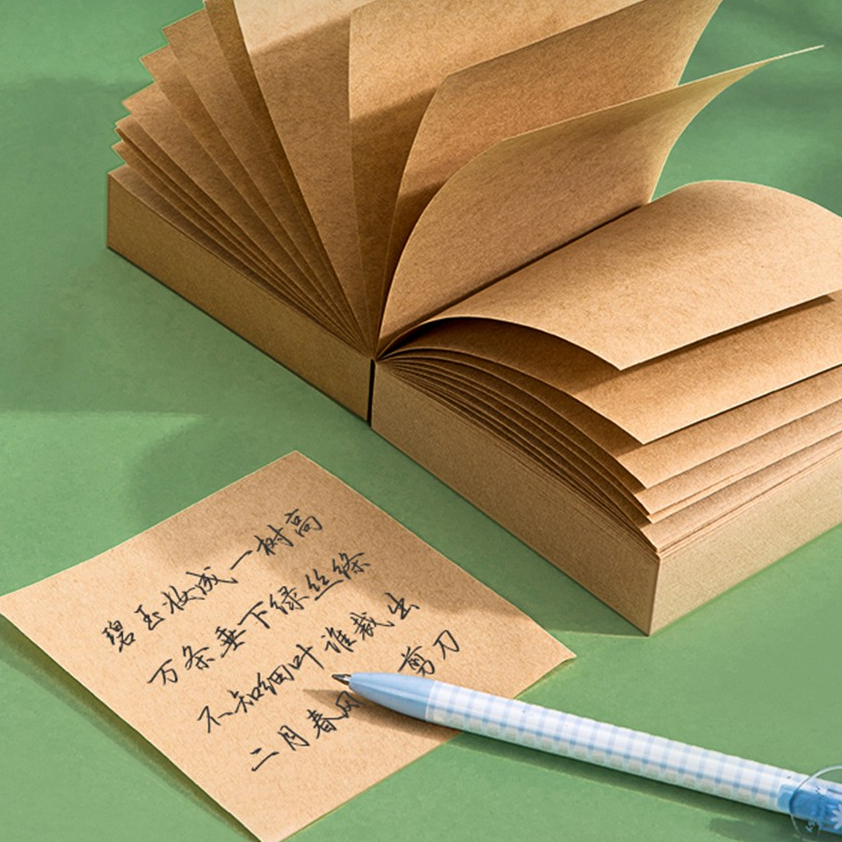 碧玉妆成一树高
万条垂下绿丝绦
不知细叶谁裁出
二月春风 剪刀